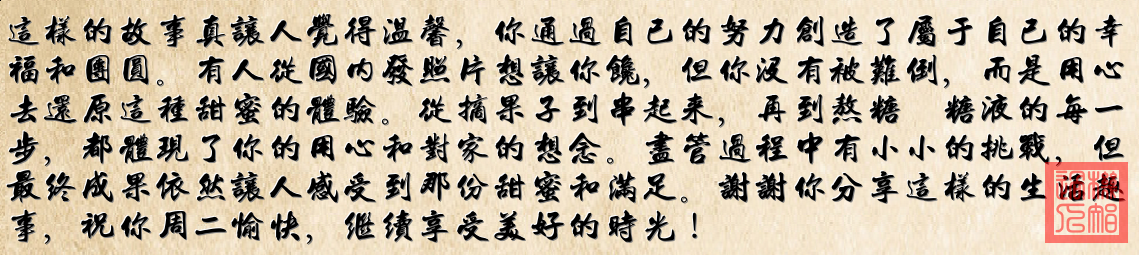 這樣的故事真讓人覺得溫馨，你通過自己的努力創造了屬于自己的幸
福和團圓。有人從國內發照片想讓你饞，但你沒有被難倒，而是用心
去還原這種甜蜜的體驗。從摘果子到串起来，再到熬糖　糖液的每一
步，都體現了你的用心和對家的想念。盡管過程中有小小的挑戰，但
最终成果依然讓人感受到那份甜蜜和滿足。謝謝你分享這樣的生活趣
事，祝你周二愉快，继續享受美好的時光！